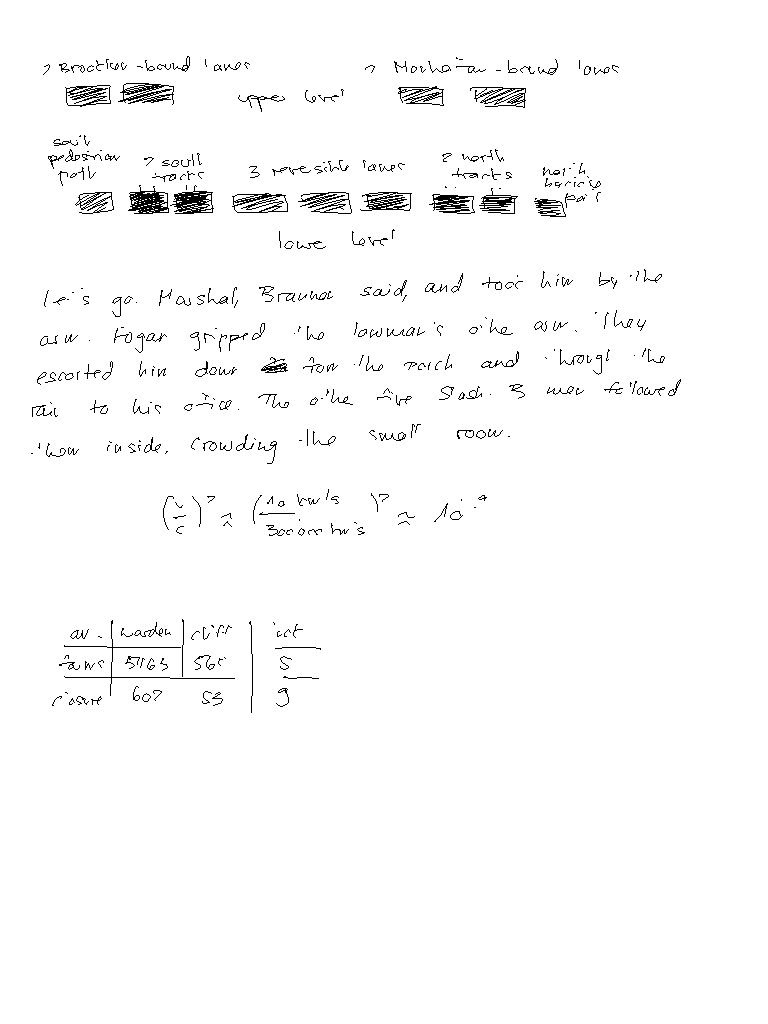 2 Brooklyn-bound lanes 2 Manhattan-bound lanes
upper level
south
pedestrian
path
2 south
tracks
3 reversible lanes
2 north
tracks
north
bicycle
path
lower level
Let's go. Marshal, Brauner said, and took him by the
arm. Fogar gripped the lawman's other arm. They
escorted him down from the porch and through the
rain to his office. The other five Slash. B men followed
them inside, crowding the small room.
(v/c)² ≈ (10 km/s / 300000 km/s)² ≈ 10⁻⁹
av. warden cliff
farms 565 5
closure 607 53 9